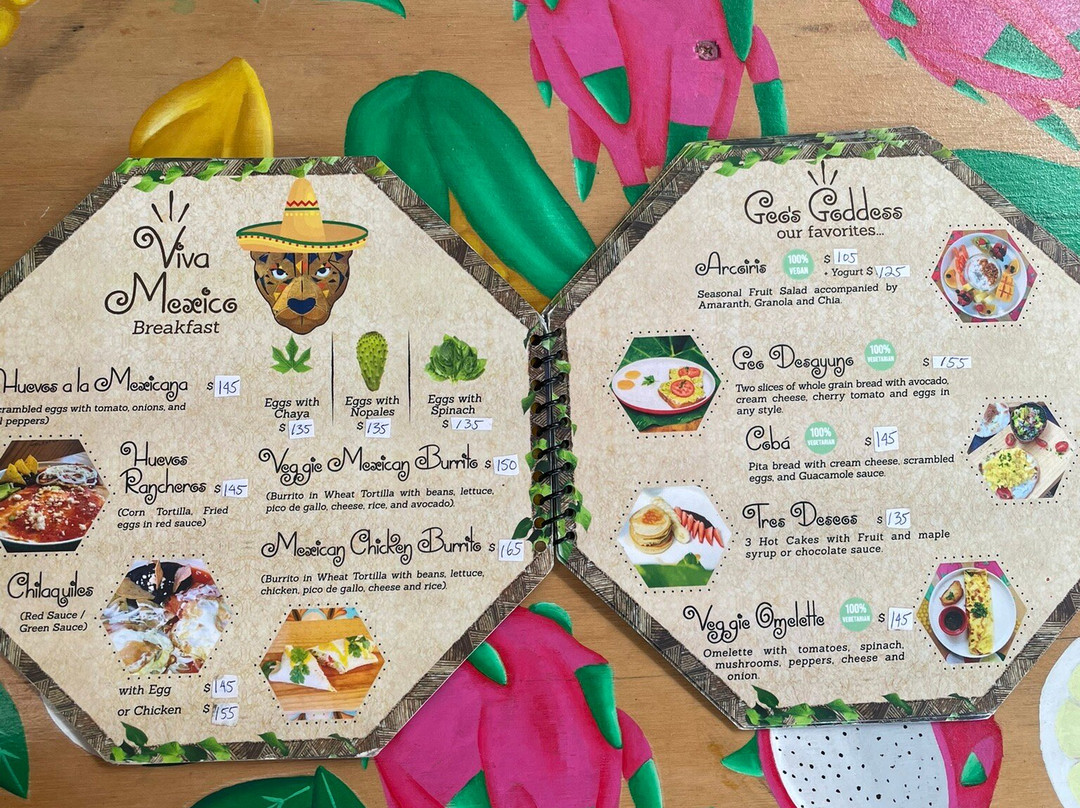 Viva
Mexico
Breakfast
Huevos a la Mexicana $ 145
crambled eggs with tomato, onions, and
peppers)
Eggs with
Chaya
$ 135
Eggs with
Nopales
$ 135
Eggs with
Spinach
$ 135
Huevos
Rancheros $ 145
(Corn Tortilla, Fried
eggs in red sauce)
Veggie Mexican Burrito $ 150
(Burrito in Wheat Tortilla with beans, lettuce,
pico de gallo, cheese, rice, and avocado).
Mexican Chicken Burrito $ 165
(Burrito in Wheat Tortilla with beans, lettuce,
chicken, pico de gallo, cheese and rice).
Chilaquiles
(Red Sauce /
Green Sauce)
with Egg $ 145
or Chicken $ 155
Geo's Goddess
our favorites...
Arcoiris 100% VEGAN $ 105
+ Yogurt $ 125
Seasonal Fruit Salad accompanied by
Amaranth, Granola and Chia.
Geo Desayuno 100% VEGETARIAN $ 155
Two slices of whole grain bread with avocado,
cream cheese, cherry tomato and eggs in
any style.
Cobá 100% VEGETARIAN $ 145
Pita bread with cream cheese, scrambled
eggs, and Guacamole sauce.
Tres Deseos $ 135
3 Hot Cakes with Fruit and maple
syrup or chocolate sauce.
Veggie Omelette 100% VEGETARIAN $ 145
Omelette with tomatoes, spinach,
mushrooms, peppers, cheese and
onion.